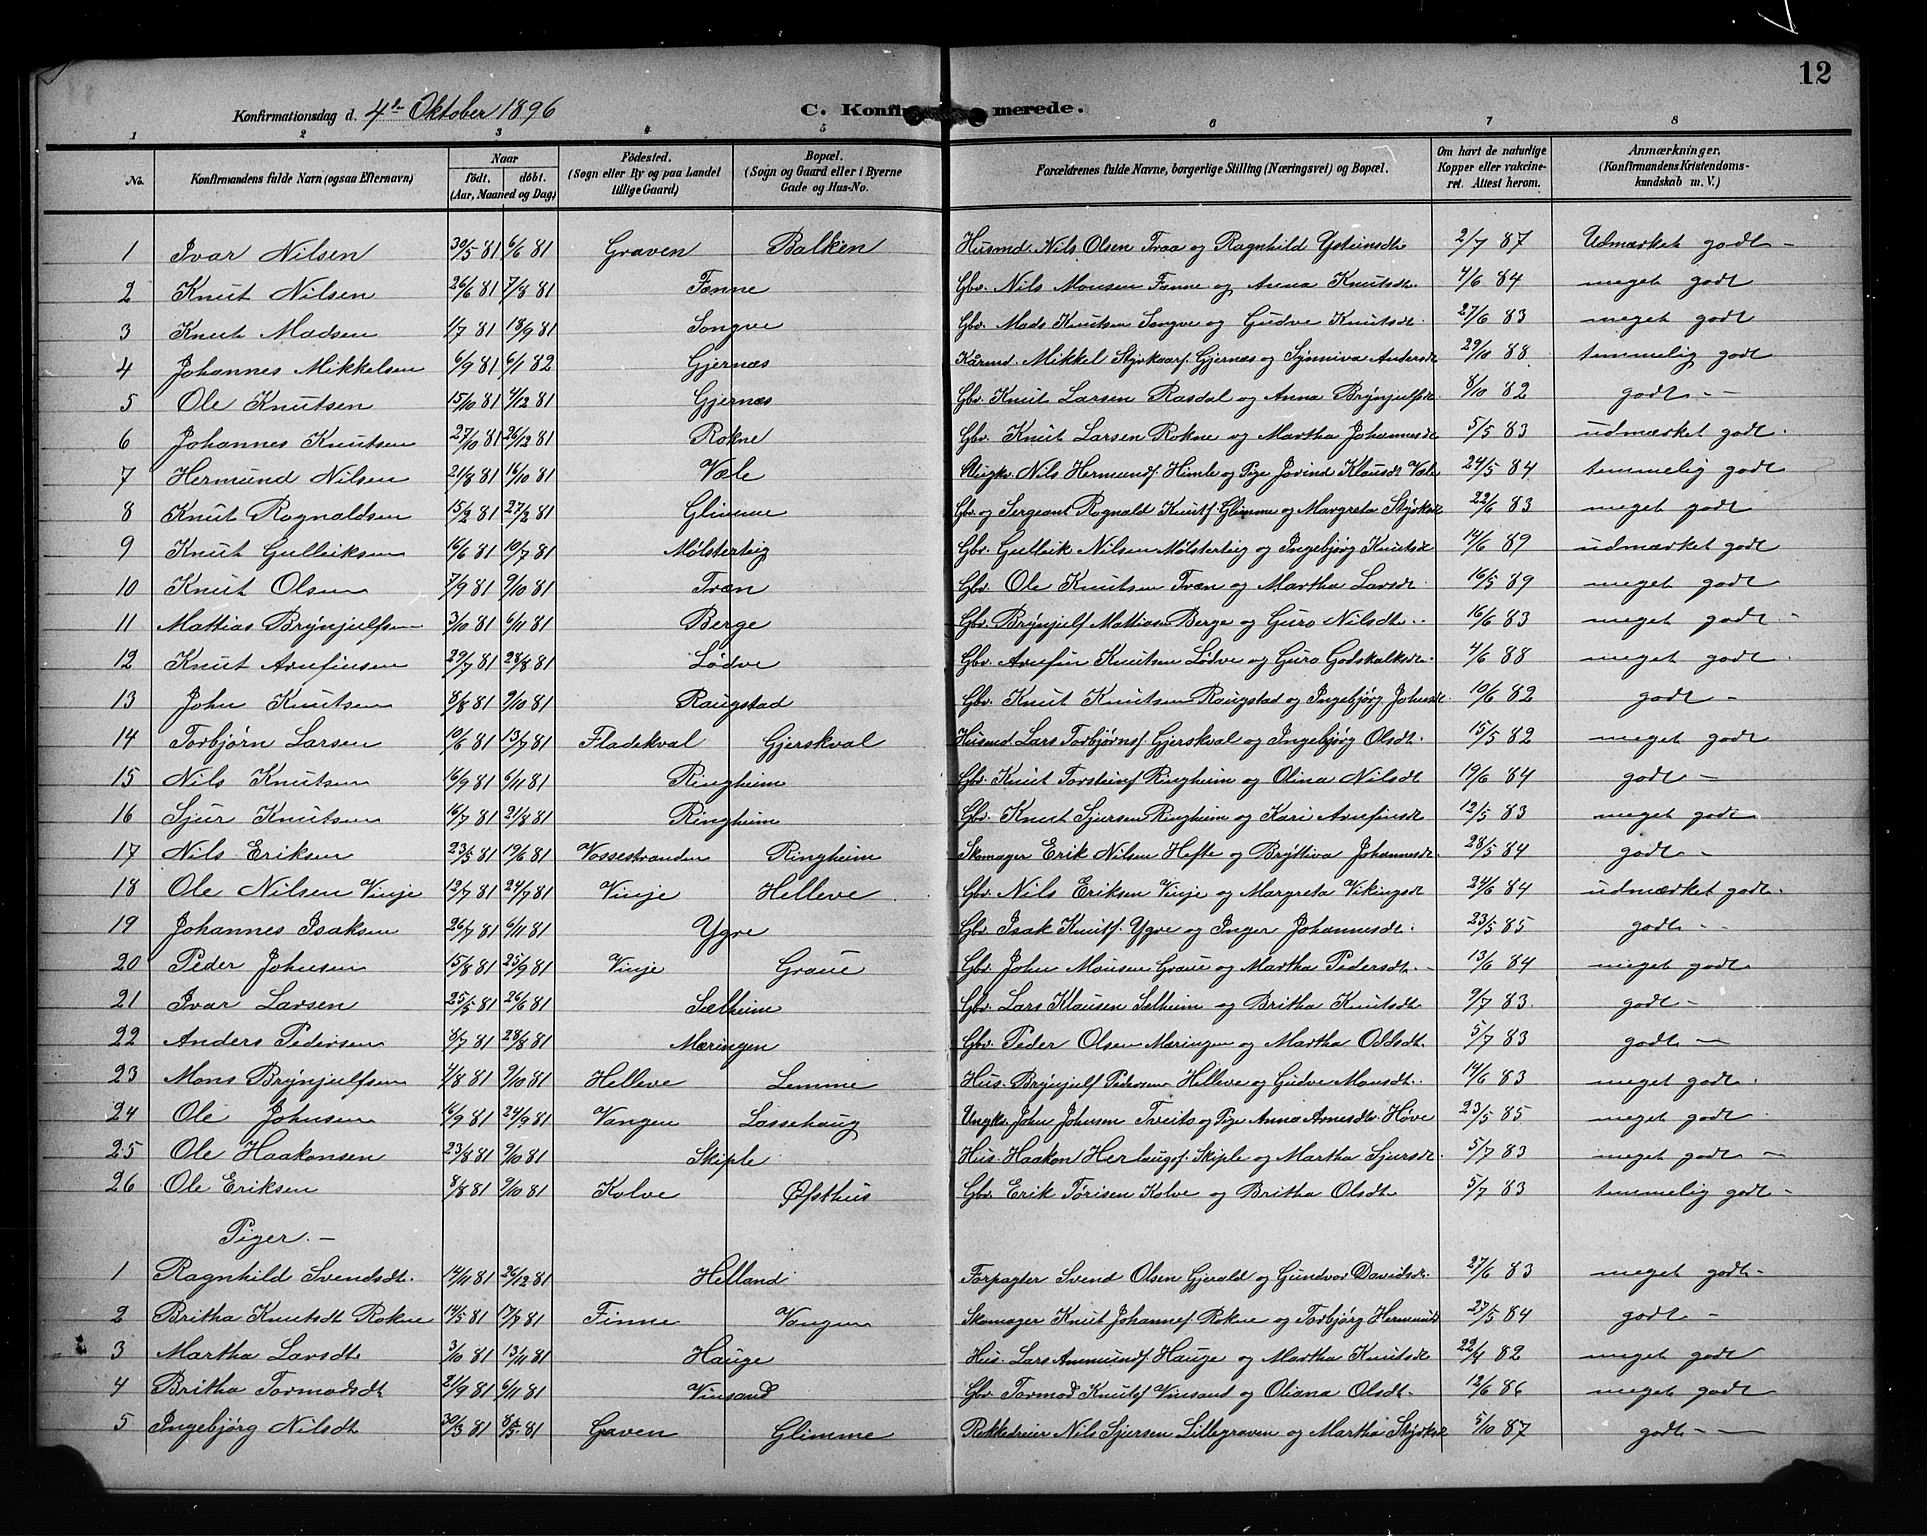 12
Konfirmationsdag d. 4de Oktober 1896 C. Konfirmerede.
1 2 3 4 5 6 7 8
No. Konfirmandens fulde Navn (ogsaa Efternavn) Naar født. døbt. (Aar, Maaned og Dag) Fødested. (Sogn eller By og paa Landet tillige Gaard) Bopæl. (Sogn og Gaard eller i Byerne Gade og Hus-No. Forældrenes fulde Navne, borgerlige Stilling (Næringsvei) og Bopæl. Om havt de naturlige Kopper eller vakcineret. Attest herom. Anmærkninger. (Konfirmandens Kristendomskundskab m. V.)
1 Ivar Nilsen 30/5 81 6/6 81 Graven Balken Husmd. Nils Olsen Traa og Ragnhild Ysteinsdt. 2/7 87 Udmærket godt –
2 Knut Nilsen 26/6 81 7/8 81 Fenne Gbr. Nils Monsen Fenne og Anna Knutsdt. 4/6 84 meget godt
3 Knut Madsen 1/7 81 18/9 81 Songve Gbr. Mads Knutsen Songve og Gudve Knutsdt. 27/6 83 meget godt
4 Johannes Mikkelsen 6/9 81 6/1 82 Gjernæs Kårmd. Mikkel Styrkaarf. Gjernæs og Synniva Andersdt 29/10 88 temmelig godt
5 Ole Knutsen 15/10 81 4/12 81 Gjernæs Gbr. Knut Larsen Rasdal og Anna Brynjulfsdt 8/10 82 godt – –
6 Johannes Knutsen 27/10 81 26/12 81 Rokne Gbr. Knut Larsen Rokne og Martha Johannesdt 5/5 83 udmærket godt.
7 Hermund Nilsen 21/8 81 16/10 81 Væle Ungkr. Nils Hermundf. Himle og Pige Jorind Klausdt Væle 24/5 84 temmelig godt
8 Knut Rognaldsen 15/2 81 27/2 81 Glimme Gbr. og Sergeant Rognald Knutf. Glimme og Margreta Styrksdt 22/6 83 meget godt
9 Knut Gulleiksen 16/6 81 10/7 81 Mølsterteig Gbr. Gulleik Nilsen Mølsterteig og Ingebjørg Knutsdt 14/6 89 udmærket godt
10 Knut Olsen 7/9 81 9/10 81 Træn Gbr. Ole Knutsen Træn og Martha Larsdt. 16/5 89 meget godt
11 Mattias Brynjulfsen 3/10 81 6/11 81 Berge Gbr. Brynjulf Mattiasen Berge og Guro Nilsdt. 16/6 83 meget godt –
12 Knut Arnfinsen 29/7 81 28/8 81 Lødve Gbr. Arnfin Knutsen Lødve og Guro Godskalksdt. 4/6 88 meget godt
13 John Knutsen 8/8 81 9/10 81 Raugstad Gbr. Knut Knutsen Raugstad og Ingebjørg Johnsdt. 10/6 82 godt –
14 Torbjørn Larsen 10/6 81 13/7 81 Fladekval Gjerskval Husmd. Lars Torbjørnf. Gjerskval og Ingebjørg Olsdt. 15/5 82 meget godt
15 Nils Knutsen 16/9 81 6/11 81 Ringheim Gbr. Knut Torsteinf Ringheim og Olina Nilsdt 19/6 84 godt –
16 Sjur Knutsen 16/7 81 21/8 81 Ringheim Gbr. Knut Sjursen Ringheim og Kari Arnfinsdt 12/5 83 meget godt.
17 Nils Eriksen 23/5 81 19/6 81 Vossestranden Ringheim Skomager Erik Nilsen Hefte og Bryttiva Johannesdt. 28/5 84 godt –
18 Ole Nilsen Vinje 12/7 81 24/7 81 Vinje Helleve Gbr. Nils Eriksen Vinje og Margreta Vikingsdt 24/6 84 udmærket godt.
19 Johannes Isaksen 26/7 81 6/11 81 Ygre Gbr. Isak Knutf. Ygre og Inger Johannesdt. 23/5 85 godt – –
20 Peder Johnsen 15/8 81 25/9 81 Vinje Graue Gbr. John Monsen Graue og Martha Pedersdt. – 13/6 84 meget godt
21 Ivar Larsen 25/5 81 26/6 81 Sælheim Gbr. Lars Klausen Sælheim og Britha Knutsdt. 9/7 83. godt –
22 Anders Pedersen 8/7 81 28/8 81 Mæringen Gbr. Peder Olsen Mæringen og Martha Oddsdt. 5/7 83 godt –
23 Mons Brynjulfsen 7/8 81 9/10 81 Helleve Lemme Hus. Brynjulf Pedersen Helleve og Gudve Monsdt. 14/6 83 meget godt.
24 Ole Johnsen 16/9 81 24/9 81 Vangen Lassehaug Ungkr. John Johnsen Tveito og Pige Anna Arnesdtr. Høve 23/5 85 meget godt
25 Ole Haakonsen 23/8 81 9/10 81 Skiple Hus. Haakon Herlaugf. Skiple og Martha Sjursdt. 5/7 83 meget godt –
26 Ole Eriksen 8/8 81 9/10 81 Kolve Øfsthus Gbr. Erik Tørisen Kolve og Britha Olsdt. 5/7 83 temmelig godt –
Piger. –
1 Ragnhild Svendsdt. 14/11 81 26/12 81 Helland Forpagter Svend Olsen Gjerald og Gundvor Davidsdt. 27/6 83 meget godt –
2 Britha Knutsdt Rokne 14/5 81 17/7 81 Finne Vangen Skomager Knut Johannef. Rokne og Torbjørg Hermundsdt 27/5 84 godt –
3 Martha Larsdt. 3/10 81 13/11 81 Hauge Hus. Lars Ammundf. Hauge og Martha Knutsdt 22/4 82 meget godt.
4 Britha Tormodsdt 21/9 81 6/11 81 Vinsand Gbr. Tormod Knutsf Vinsand og Oliana Olsdt. 12/6 86 meget godt
5 Ingebjørg Nilsdt 30/3 81 8/5 81 Graven Glimme Rekkedreier Nils Sjursen Lillegraven og Martha Styrksdt 5/10 87 godt – –